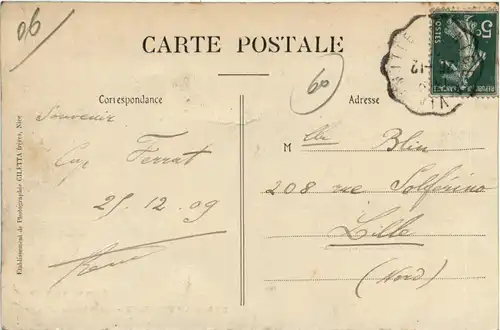 06
CARTE POSTALE
60
5c
POSTES
Correspondance
Adresse
Souvenir
Cap Ferrat
25.12.09
Mlle Blin
208 rue Solférino
Lille
(Nord)
Etablissement de Photographie GILETTA frères, Nice